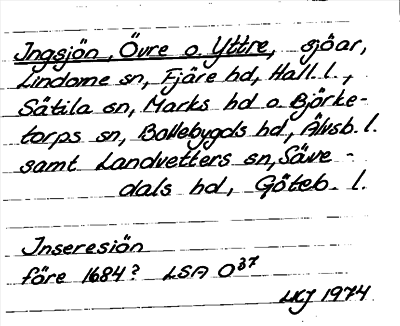 Ingsjön, Övre o. Yttre, sjöar,
Lindome sn, Fjäre hd, Hall. l.,
Sätila sn, Marks hd o. Björke-
torps sn, Bollebygds hd, Älvsb. l.
samt Landvetters sn, Säve-
dals hd, Göteb. l.
Inseresiön
före 1684? LSA O37
LKJ 1974